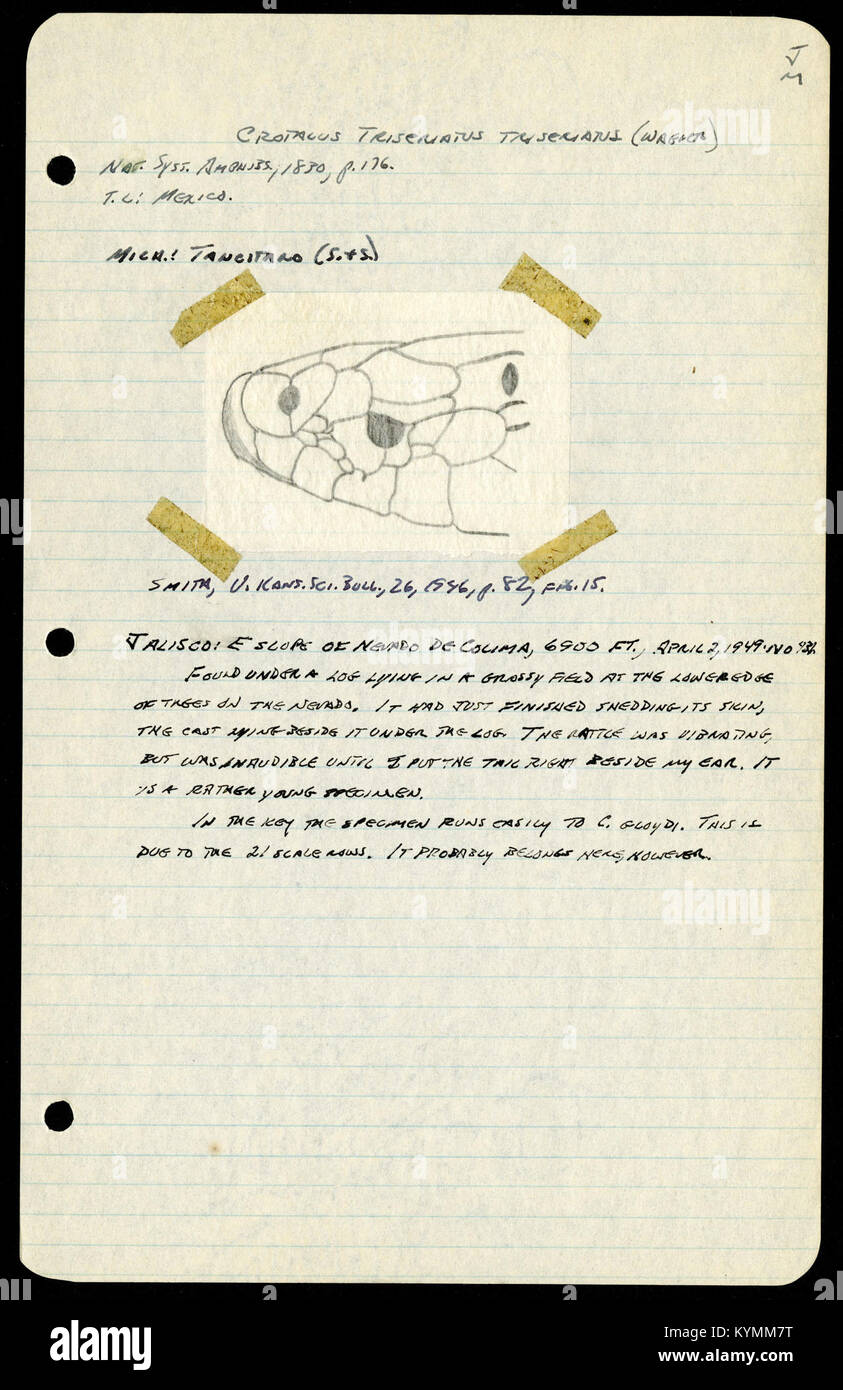 J
M
CROTALUS TRISERIATUS TRISERIATUS (WAGLER)
NAT. SYST. AMPHIBS, 1830, p. 176.
T. L: MEXICO.
MICH.: TANCITARO (S.+S.)
SMITH, U. KANS. SCI. BULL., 26, 1946, p. 82, FIG. 15.
JALISCO: E SLOPE OF NEVADO DE COLIMA, 6900 FT., APRIL 2, 1949. NO
FOUND UNDER A LOG LYING IN A GRASSY FIELD AT THE LOWER EDGE
OF TREES ON THE NEVADO. IT HAD JUST FINISHED SHEDDING ITS SKIN,
THE CAST LYING BESIDE IT UNDER THE LOG. THE RATTLE WAS VIBRATING,
BUT WAS INAUDIBLE UNTIL I PUT THE TAIL RIGHT BESIDE MY EAR. IT
IS A RATHER YOUNG SPECIMEN.
IN THE KEY THE SPECIMEN RUNS EASILY TO C. GLOYDI. THIS IS
DUE TO THE 21 SCALE ROWS. IT PROBABLY BELONGS HERE, HOWEVER.
alamy
KYMM7T
www.alamy.com